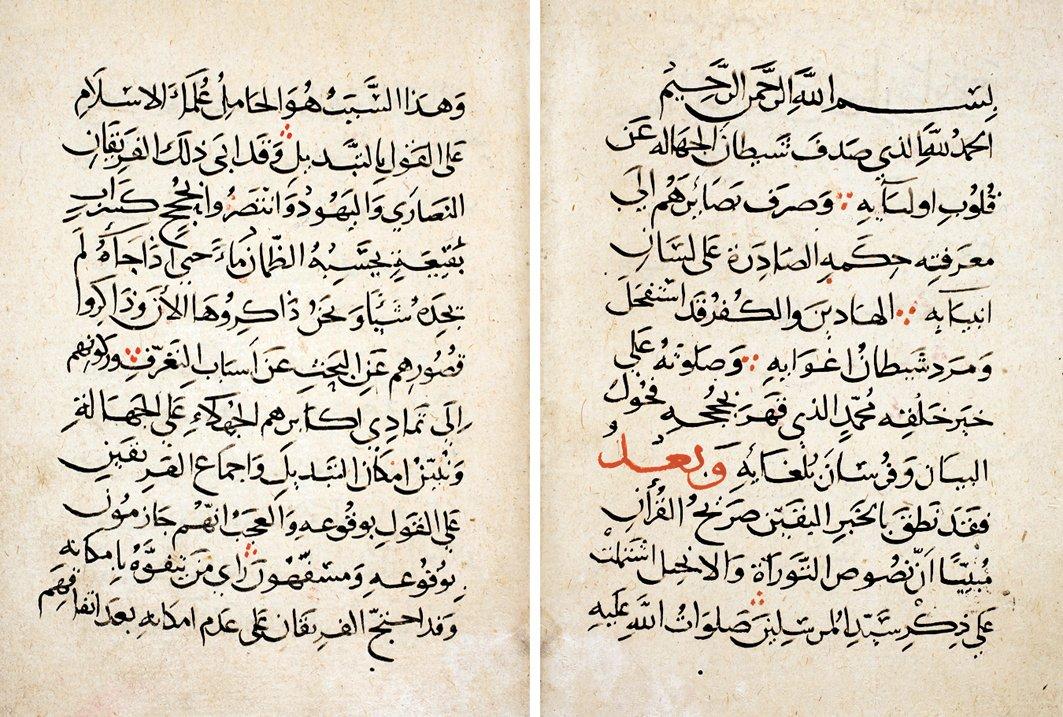 بسم الله الرحمن الرحيم
الحمد لله الذي صدف شيطان الجهاله عن
قلوب اوليآيه وصرف بصائرهم الي
معرفته حكمه الصادرة على لسان
انبيآيه الهادين والكفر قد استفحل
ومرد شيطان اغوايه وصلوته علي
خير خلقه محمد الذي قهر بحججه فحول
البيان وفرسان بلغايه وبعد
فقد نطق بالخبر اليقين صريح القرآن
مبينا ان نصوص التوراة والانجيل اشتملت
علي ذكر سيد المرسلين صلوات الله عليه
وهذا السبب هو الحامل علمآء الاسلام
على القول بالتبديل وقد ابي ذلك الفريقان
النصاري واليهود وانتصروا بحجج كسراب
بقيعة يحسبه الظمان مآء حتي اذا جآءه لم
يجده شيئا ونحن ذاكروها الآن وذاكروا
قصورهم عن البحث عن اسباب التعرف وركونهم
إلى تمادي اكابرهم الجهلاء علي الجهالة
ونبين امكان التبديل واجماع الفريقين
علي القول بوقوعه والعجب انهم جازمون
بوقوعه ومسفهون راي من يتفوه بامكانه
وقد احتج الفريقان على عدم امكانه بعد اتفاقهم